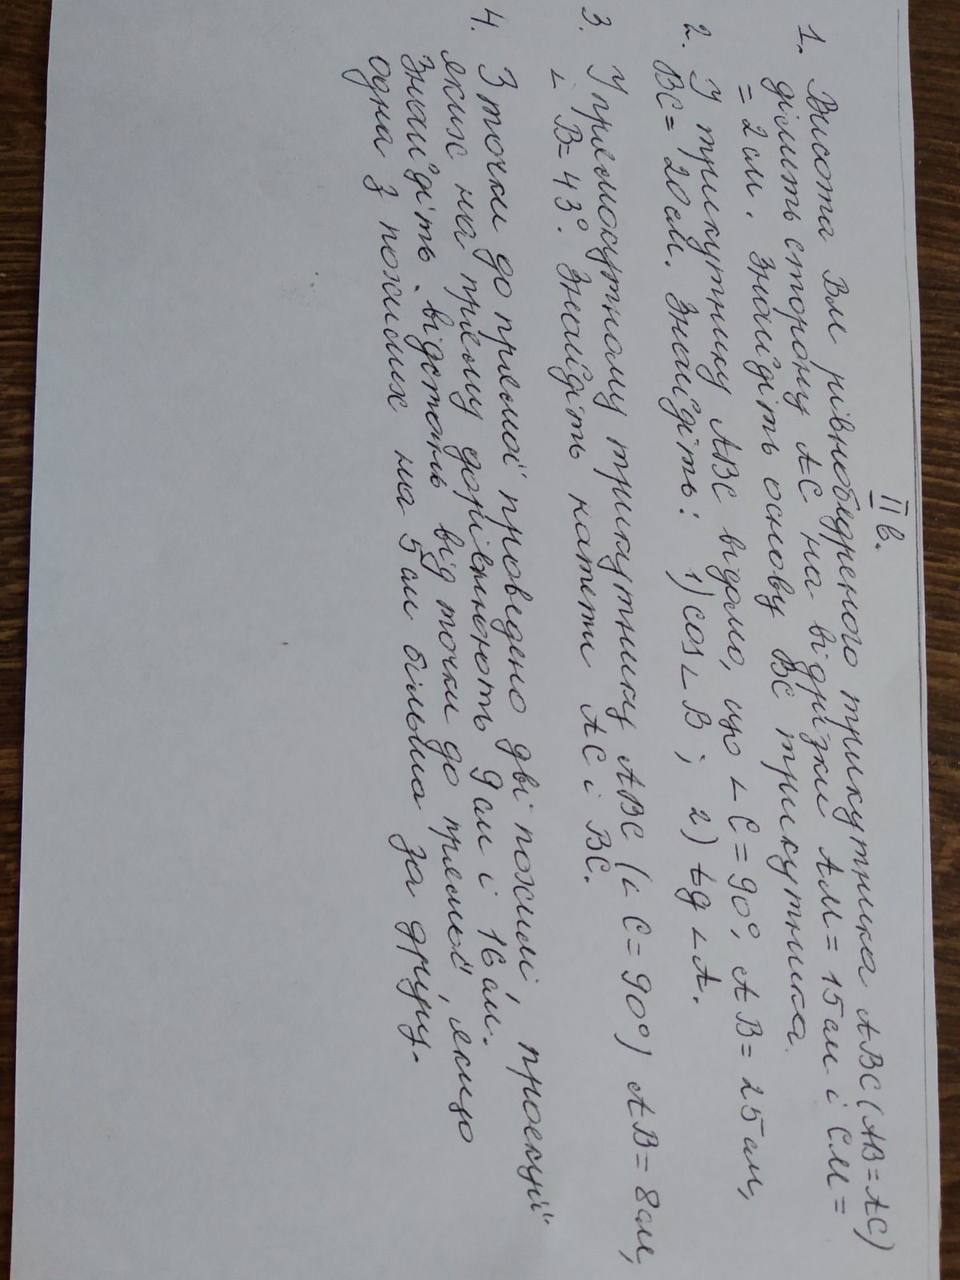 II в.
1. Висота ВМ рівнобедреного трикутника АВС (АВ=АС)
ділить сторону АС на відрізки АМ = 15 см і СМ =
= 2 см. Знайдіть основу ВС трикутника.
2. У трикутнику АВС відомо, що ∠ С = 90°, АВ = 25 см,
ВС = 20 см. Знайдіть: 1) cos ∠ В; 2) tg ∠ А.
3. У прямокутному трикутнику АВС (∠ С = 90°) АВ = 8 см,
∠ В = 43°. Знайдіть катети АС і ВС.
4. З точки до прямої проведено дві похилі, проекції
яких на пряму дорівнюють 9 см і 16 см.
Знайдіть відстань від точки до прямої, якщо
одна з похилих на 5 см більша за другу.